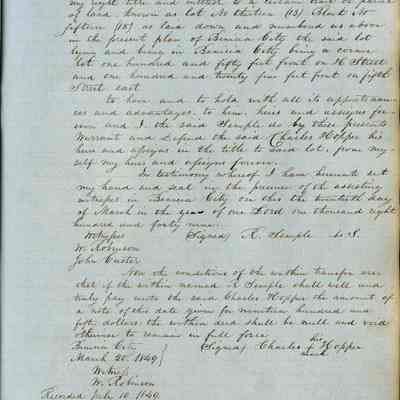 my right title and interest to a certain lot or parcel
of land known as lot No thirteen (13) Block No
fifteen (15) as laid down and numbered as above
in the present plan of Benicia City the said lot
lying and being in Benicia City being a corner
lot one hundred and fifty feet front on H Street
and one hundred and twenty five feet front on fifth
Street east
to have and to hold with all its appurtenan-
ces and advantages to him, heirs and assigns for-
ever and I the said Semple do by these presents
Warrant and defend the said Charles Hopper his
heirs and assigns in the title to said lot, from my-
self my heirs and assigns forever.
In testimony whereof I have hereunto set
my hand and seal in the presence of the attesting
witnesses in Benicia City on this the twentieth day
of March in the year of our Lord one thousand eight
hundred and forty nine.
Witnesses Signed R. Semple L. S.
W. Robinson
John Custer
Now the conditions of the within transfer are
that if the within named R Semple shall well and
truly pay unto the said Charles Hopper the amount of
a note of this date given for nineteen hundred and
fifty dollars the within deed shall be null and void
otherwise to remain in full force
his
Benicia City (Signed) Charles + Hopper
mark
March 20. 1849
Witness
W. Robinson
Recorded July 10 1849